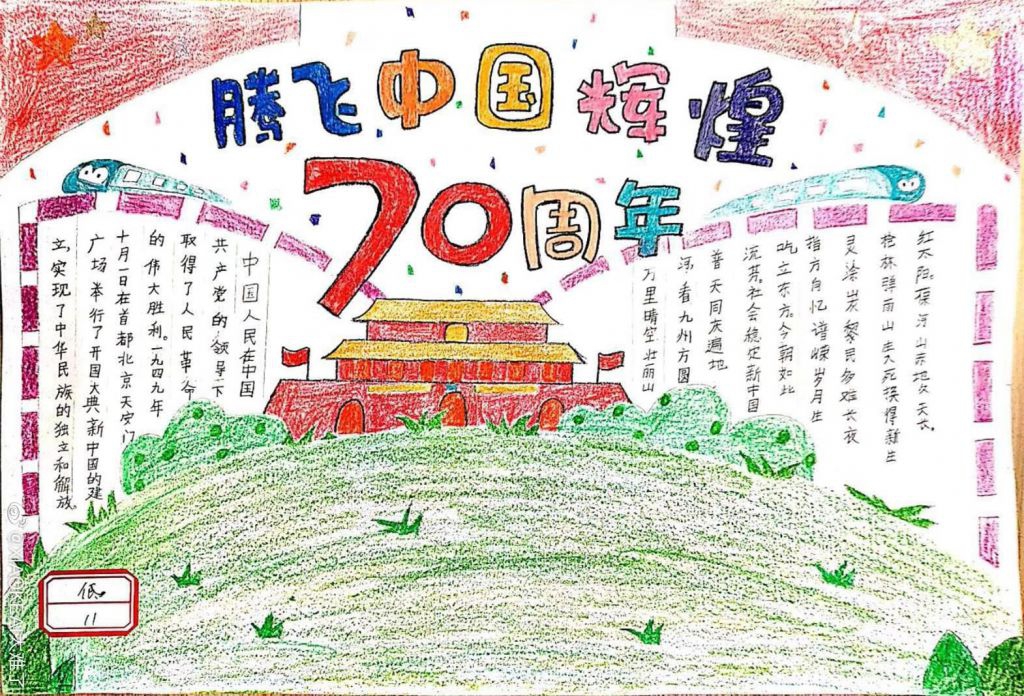 腾飞中国辉煌
70周年
中国人民在中国
共产党的领导下
取得了人民革命
的伟大胜利。一九四九年
十月一日在首都北京天安门
广场举行了开国大典新中国的建
立,实现了中华民族的独立和解放。
万里晴空壮丽山
河,看九州方圆
普天同庆遍地
流芳。社会稳定新中国
屹立东方。今朝如此
指方自忆嵘岁月生
灵涂炭黎民多难长夜
枪林弹雨山生死换得新生
红太阳保河山赤地久天长。
低
11